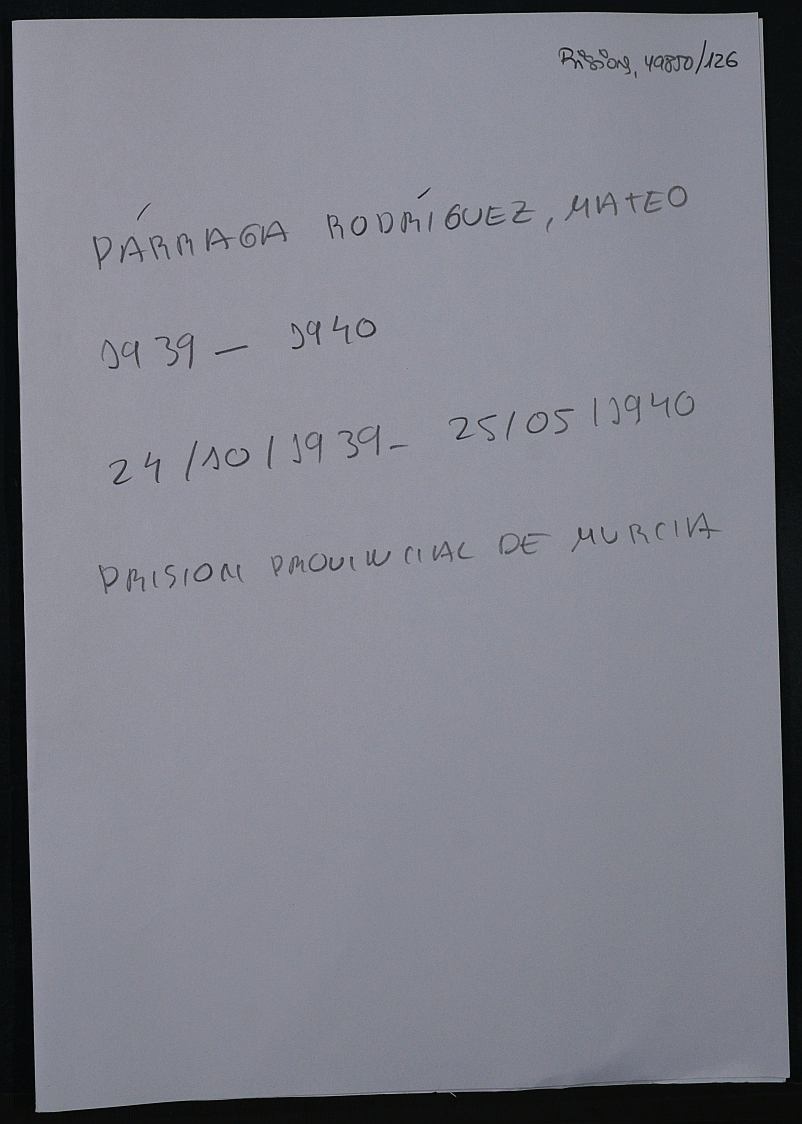 Prisión, 49850/126
PÁRRAGA RODRÍGUEZ, MATEO
1939 - 1940
24/10/1939- 25/05/1940
PRISION PROVINCIAL DE MURCIA